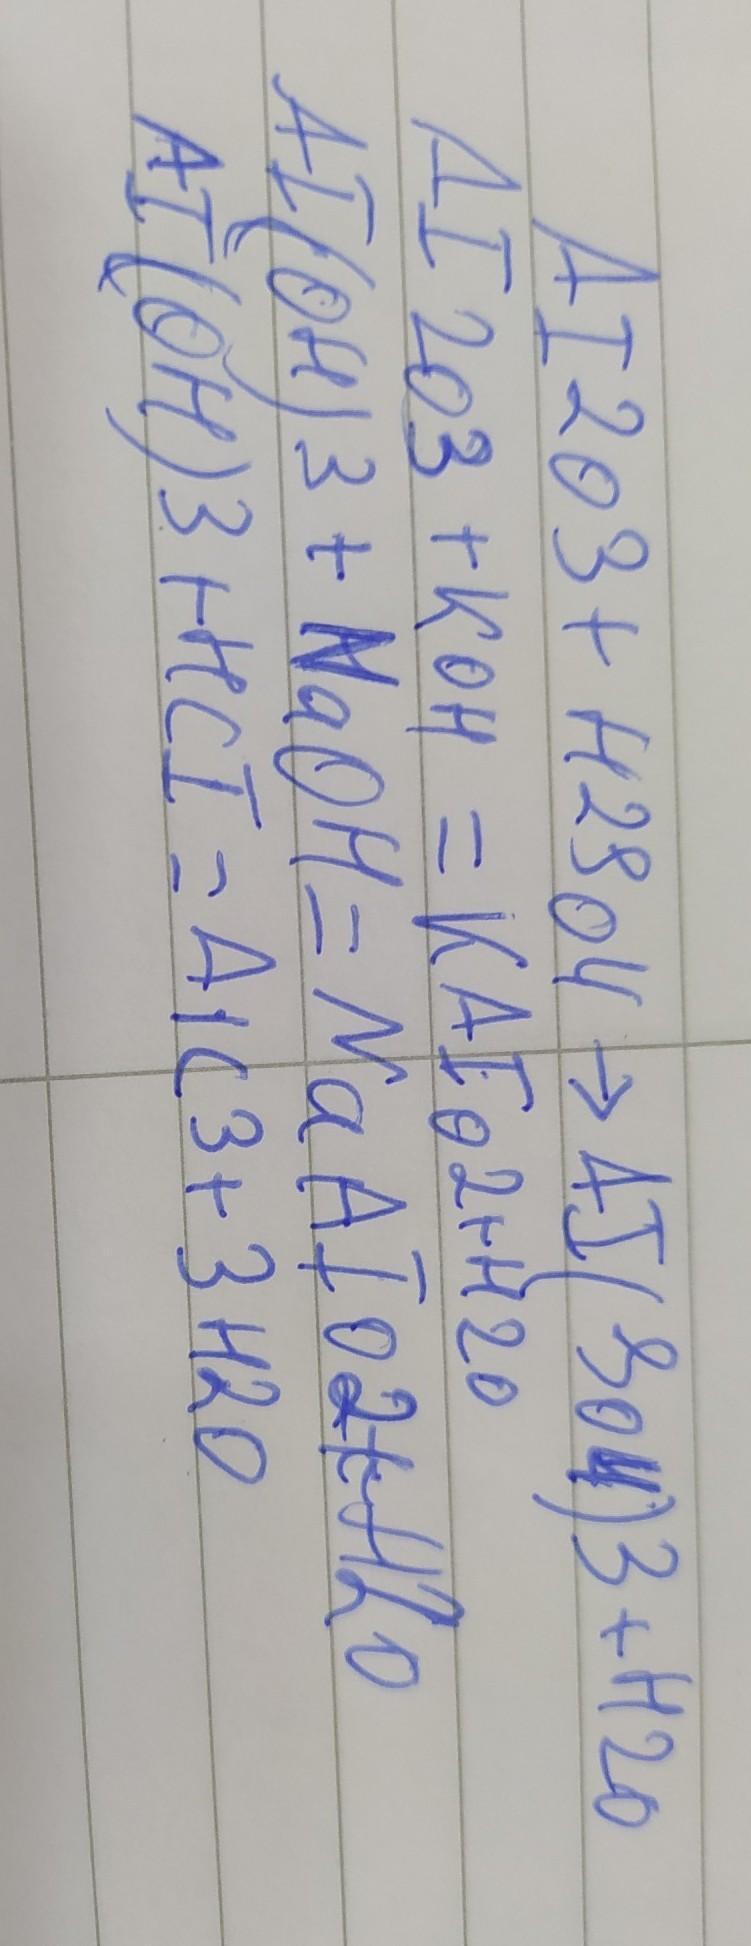 AI2O3 + H2SO4 → AI(SO4)3 + H2O
AI2O3 + KOH = KAIO2 + H2O
AI(OH)3 + NaOH = NaAIO2 + H2O
AI(OH)3 + HCI = AlC3 + 3H2O